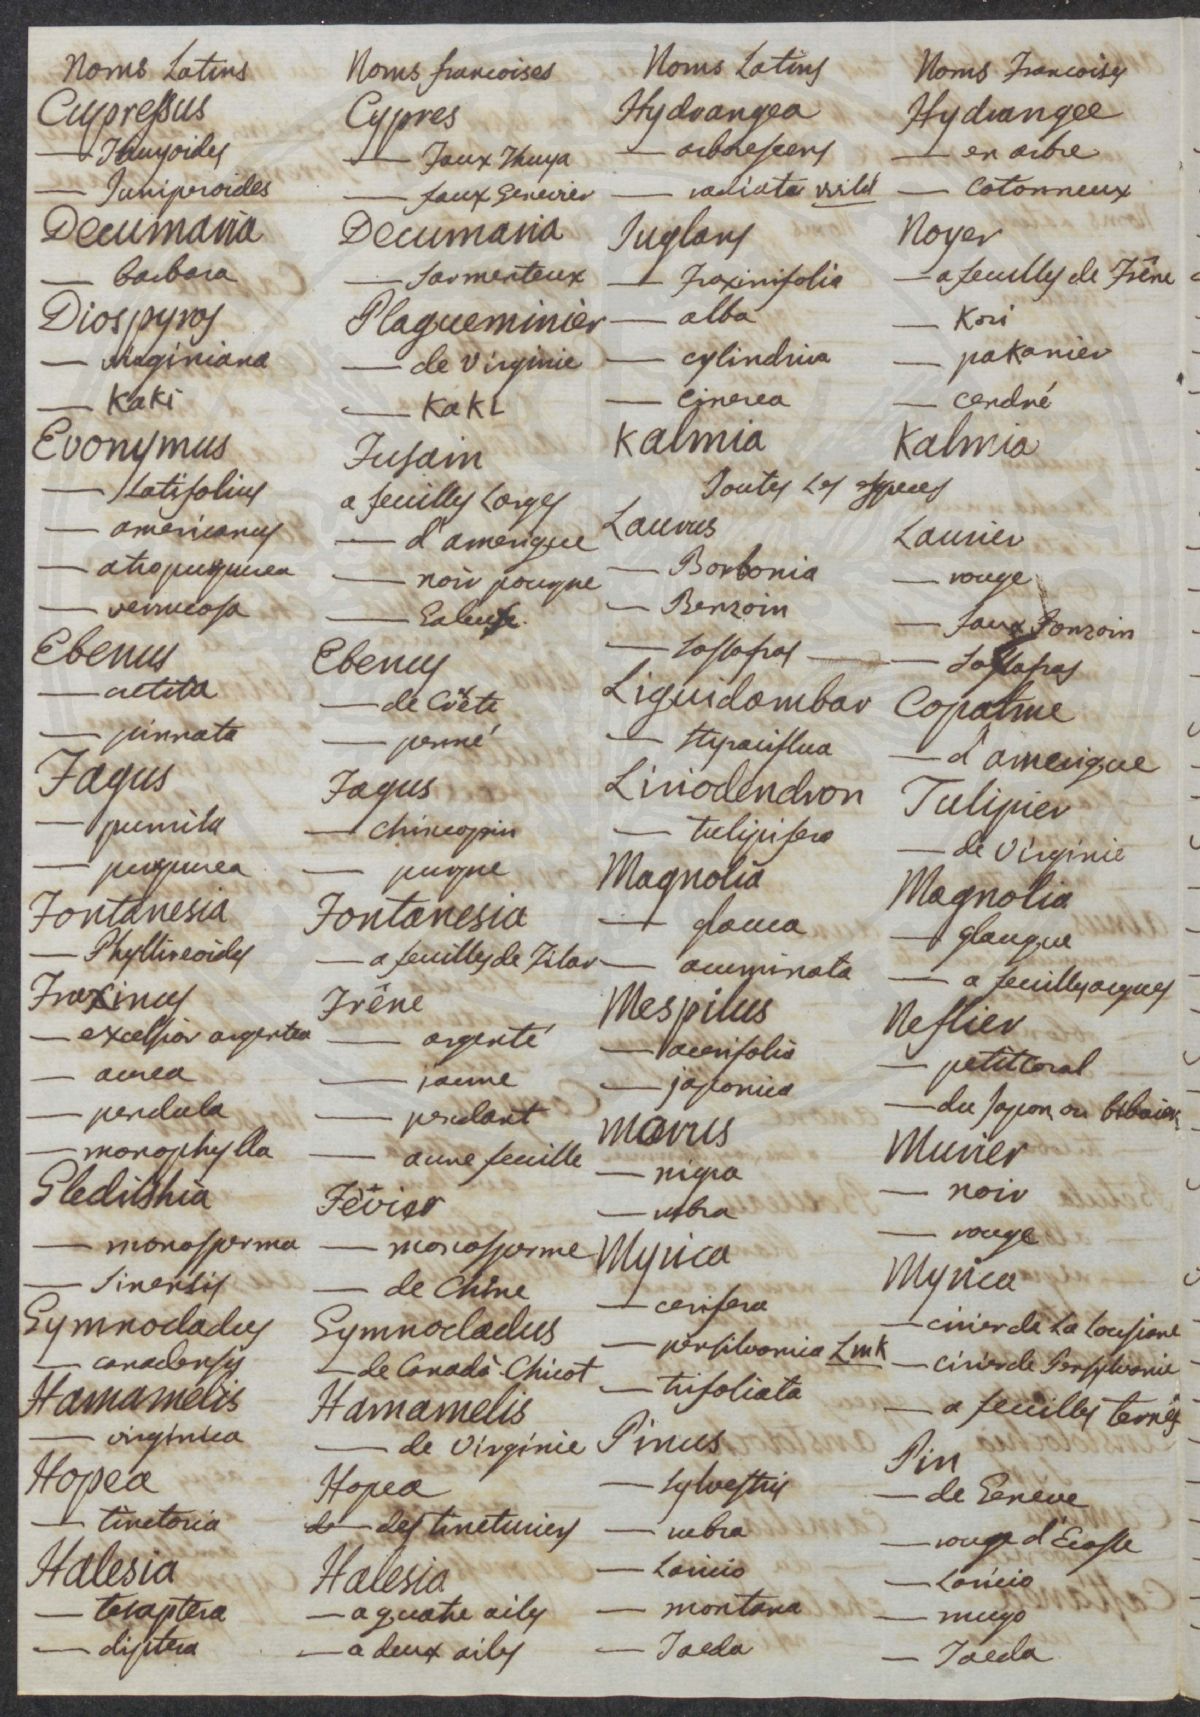 Noms Latins
Cupressus
— Thuyoides
— Juniperoides
Decumaria
— barbara
Diospyros
— virginiana
— Kaki
Evonymus
— Latifolius
— americanus
— atropurpurea
— verrucosa
Ebenus
— cretica
— pinnata
Fagus
— pumila
— purpurea
Fontanesia
— Phyllireoides
Fraxinus
— excelsior argentea
— aurea
— pendula
— monophylla
Gleditshia
— monosperma
— Sinensis
Gymnocladus
— canadensis
Hamamelis
— virginica
Hopea
— tinctoria
Halesia
— tetraptera
— diptera
Noms francoises
Cypres
— Faux Thuya
— faux Genevier
Decumaria
— Sarmenteux
Plaqueminier
— de Virginie
— Kaki
Fusain
a feuilles Larges
— d'amerique
— noir pourpre
— Galeux
Ebenus
— de Crète
— penné
Fagus
— Chincapin
— purpre
Fontanesia
— a feuilles de Filar
Frêne
— argenté
— jaune
— pendant
— a une feuille
Févier
— monosperme
— de Chine
Gymnocladus
— de Canada Chicot
Hamamelis
— de Virginie
Hopea
— des tincturiers
Halesia
— a quatre ailes
— a deux ailes
Noms Latins
Hydrangea
— arborescens
— radiata Wild
Juglans
— Fraxinifolia
— alba
— cylindrica
— Cinerea
Kalmia
Toutes Les especes
Laurus
— Borbonia
— Benzoin
— Sassafras —
Liquidambar
— Styraciflua
Liriodendron
— tulipifera
Magnolia
— glauca
— acuminata
Mespilus
— acerifolia
— japonica
Morus
— nigra
— rubra
Myrica
— cerifera
— pensilvanica Lmk
— trifoliata
Pinus
— Sylvestris
— rubra
— Laricio
— montana
— Taeda
Noms Francoises
Hydrangee
— en arbre
— Cotonneux
Noyer
— a feuilles de Frêne
— Kori
— pakanier
— Cendré
Kalmia
Laurier
— rouge
— faux Bonzoin
— Sassafras
Copalme
— d'amerique
Tulipier
— de Virginie
Magnolia
— glauque
— a feuilles aigues
Neflier
— petit Coral
— du Japon ou bibacier
Murier
— noir
— rouge
Myrica
— cirier de La Louisiane
— Cirier de Pensylvanie
— a feuilles ternées
Pin
— de Geneve
— rouge d'Ecosse
— Laricio
— mugo
— Taeda